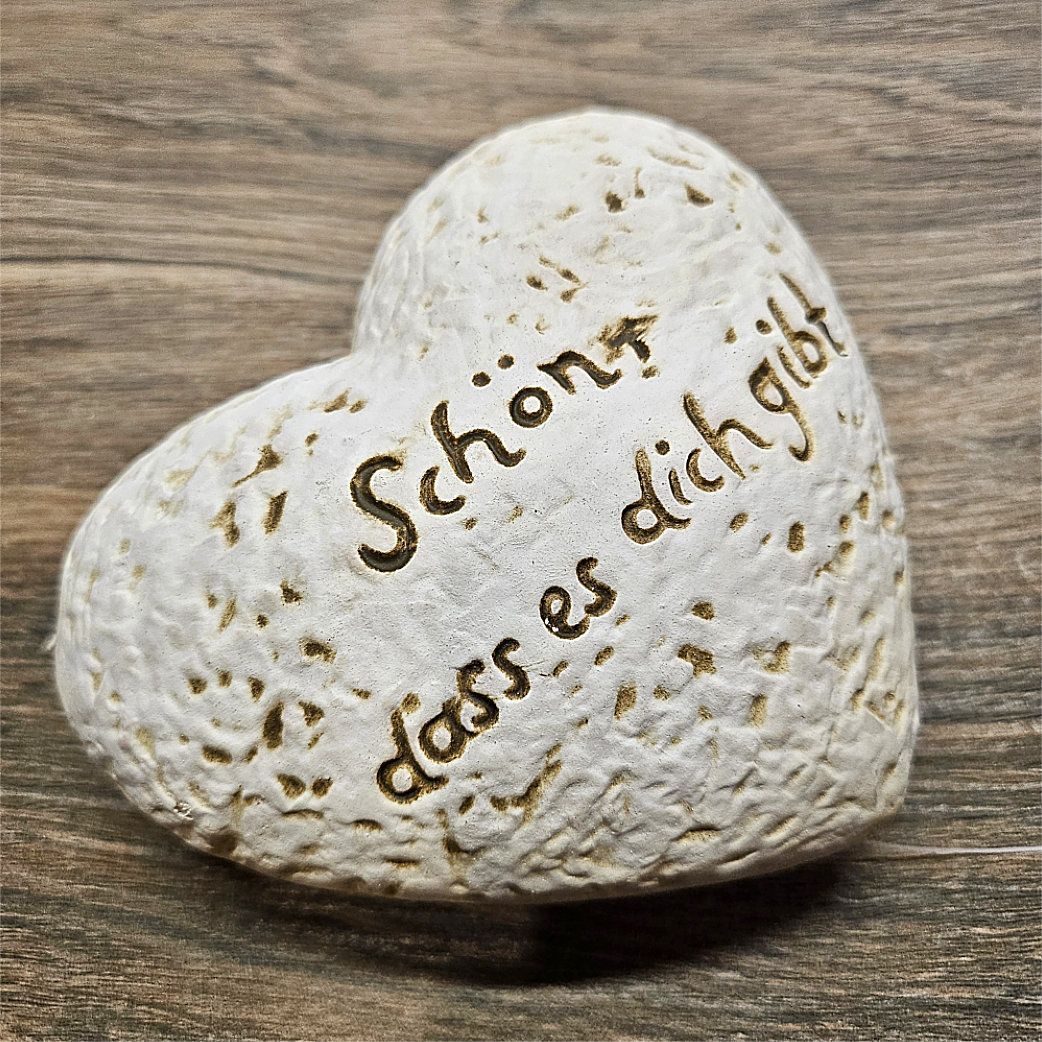 Schön,
dass es dich gibt